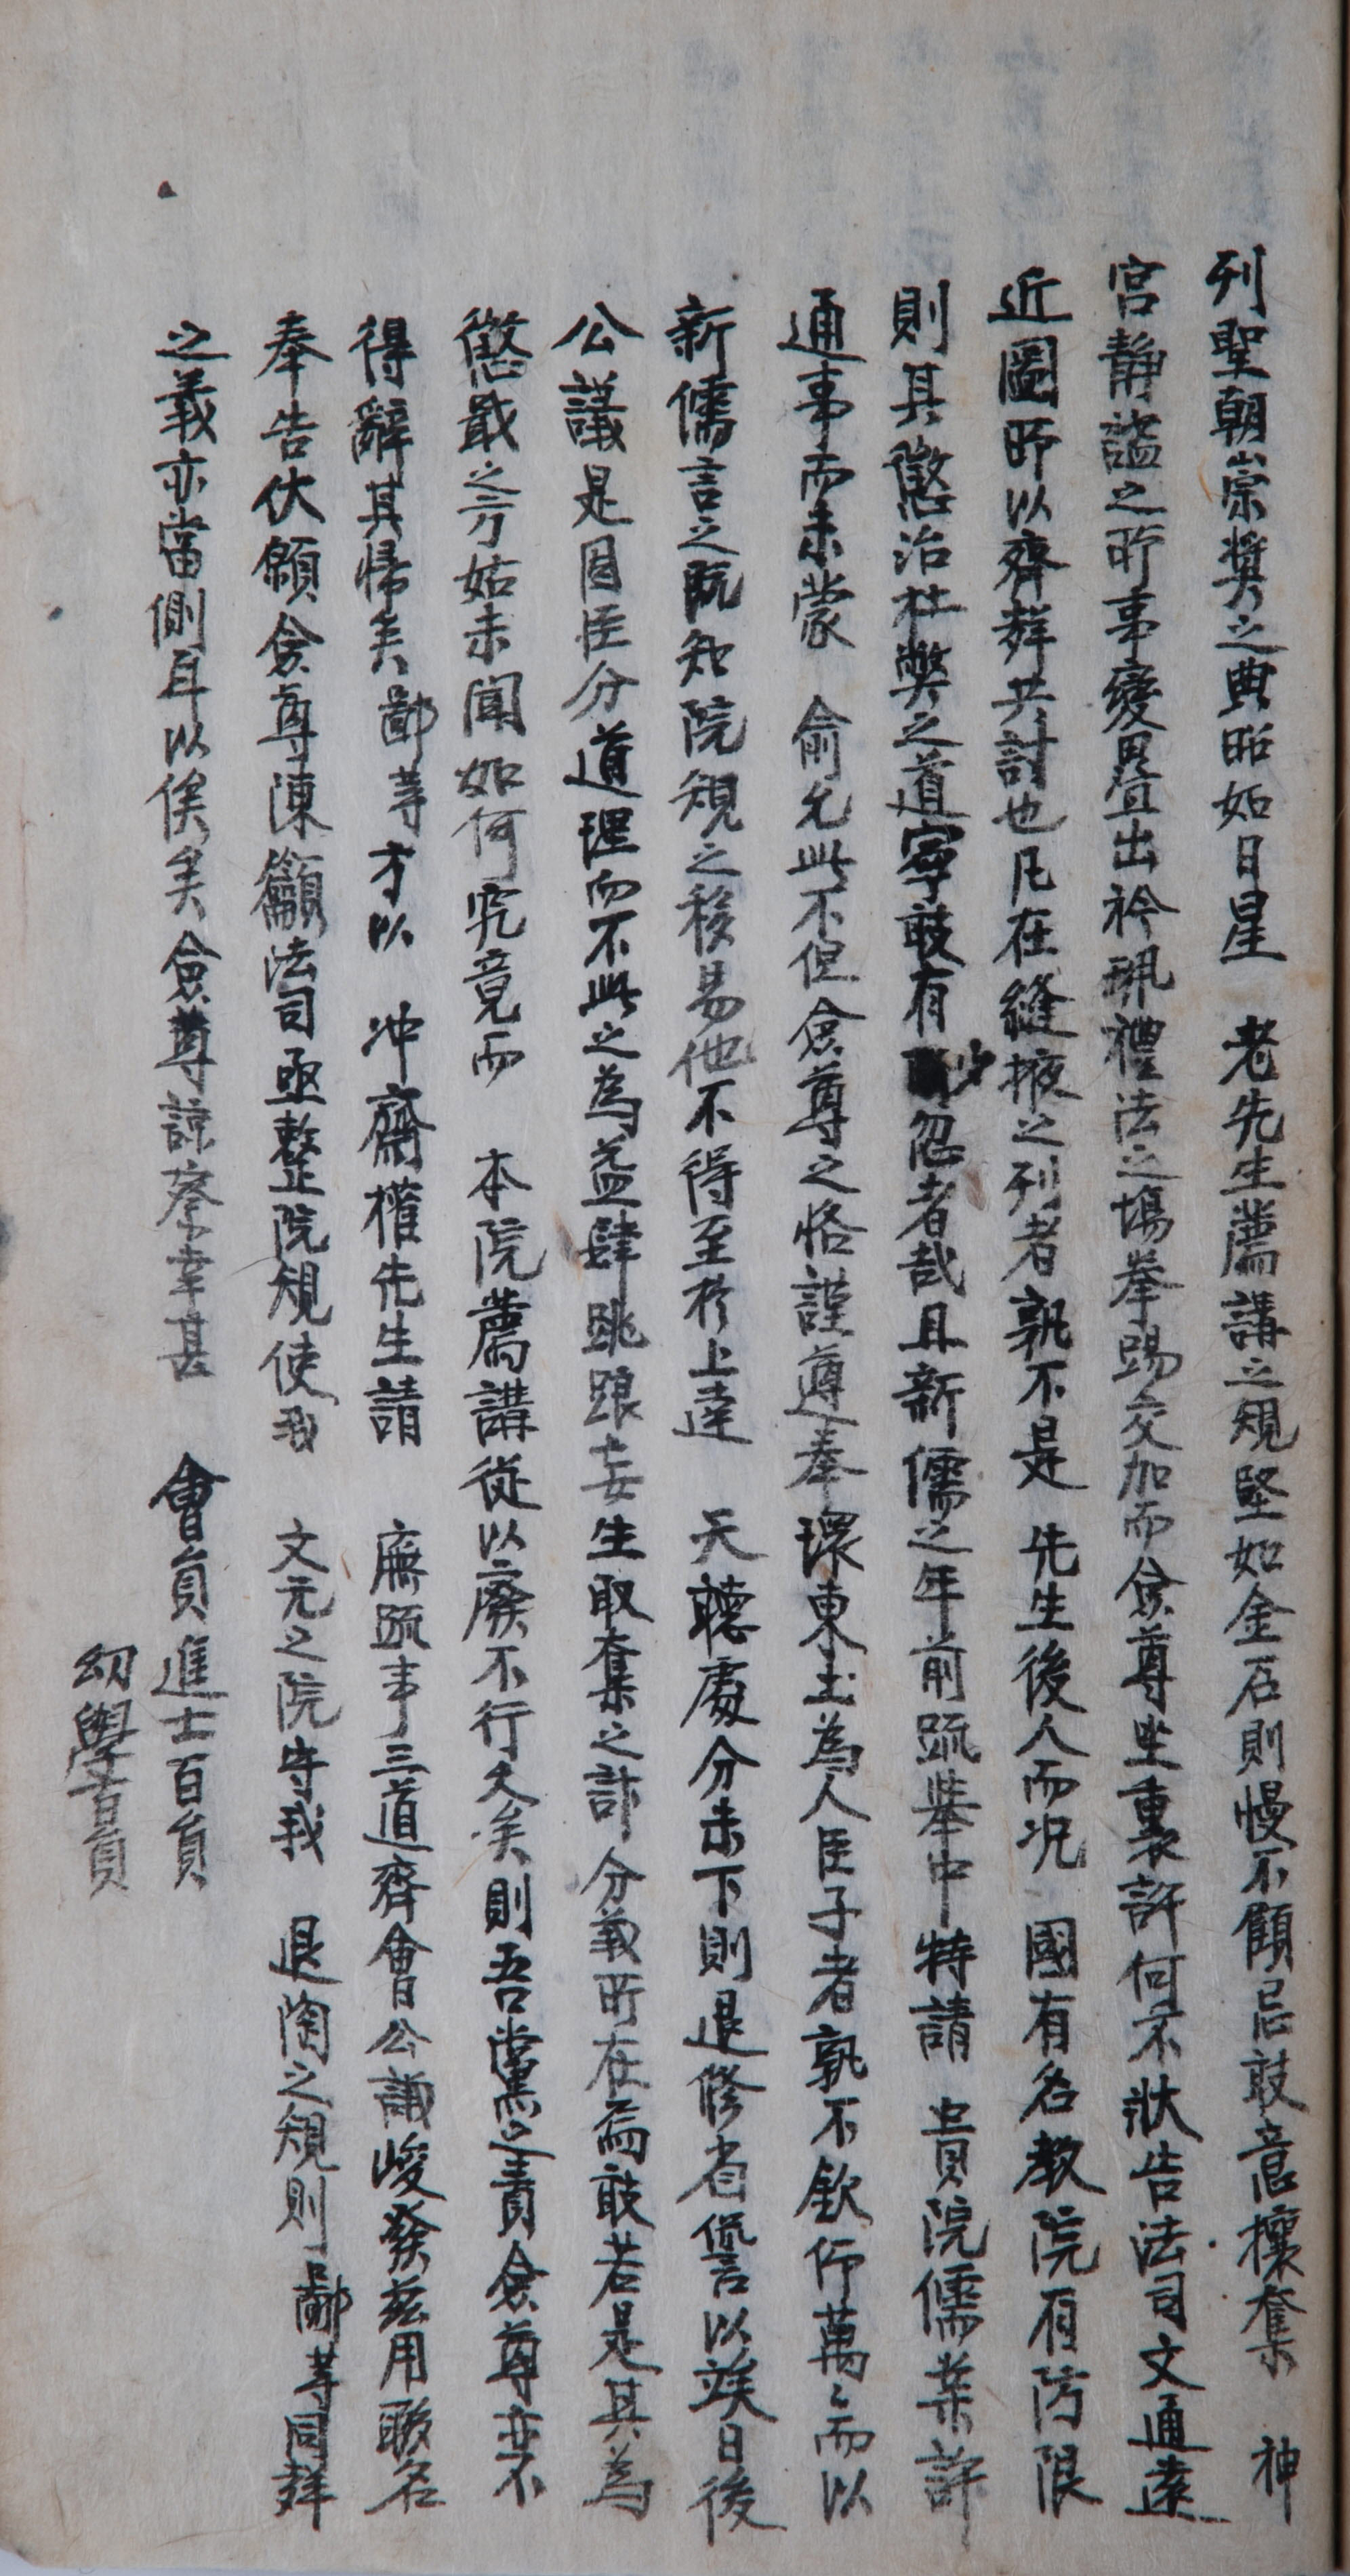 列聖朝崇奬之典昭如日星 老先生薦講之規堅如金石則慢不顧忌敢意攘奪 神
宮静謐之所事變畳出衿珮禮法之場拳踢交加而僉尊坐裏許何不狀告法司文通遠
近圖所以齊辭共討也凡在縫掖之列者孰不是 先生後人而况 國有名教院有防限
則其懲治杜弊之道寧敢有忽者哉且新儒之年前疏擧中特請 貴院儒案許
通事而未蒙 俞允此不但僉尊之恪謹遵奉環東土為人臣子者孰不欽仰萬〻而以
新儒言之既知院規之移易他不得至於上達 天聽處分未下則退修省愆以俟日後
公議是固臣分道理而不此之為益肆跳踉妄生取奪之計分義所在焉敢若是其為
懲戢之方姑未聞如何究竟而 本院薦講從以廢不行久矣則吾黨之責僉尊亦不
得辭其帰矣鄙等才以 冲齋權先生請 廡疏事三道齊會公議峻發玆用聯名
奉告伏願僉尊陳籲法司亟整院規使我 文元之院守我 退陶之規則鄙等同辭
之義亦當側耳以俟矣僉尊諒察幸甚 會員進士百員
幼學百員